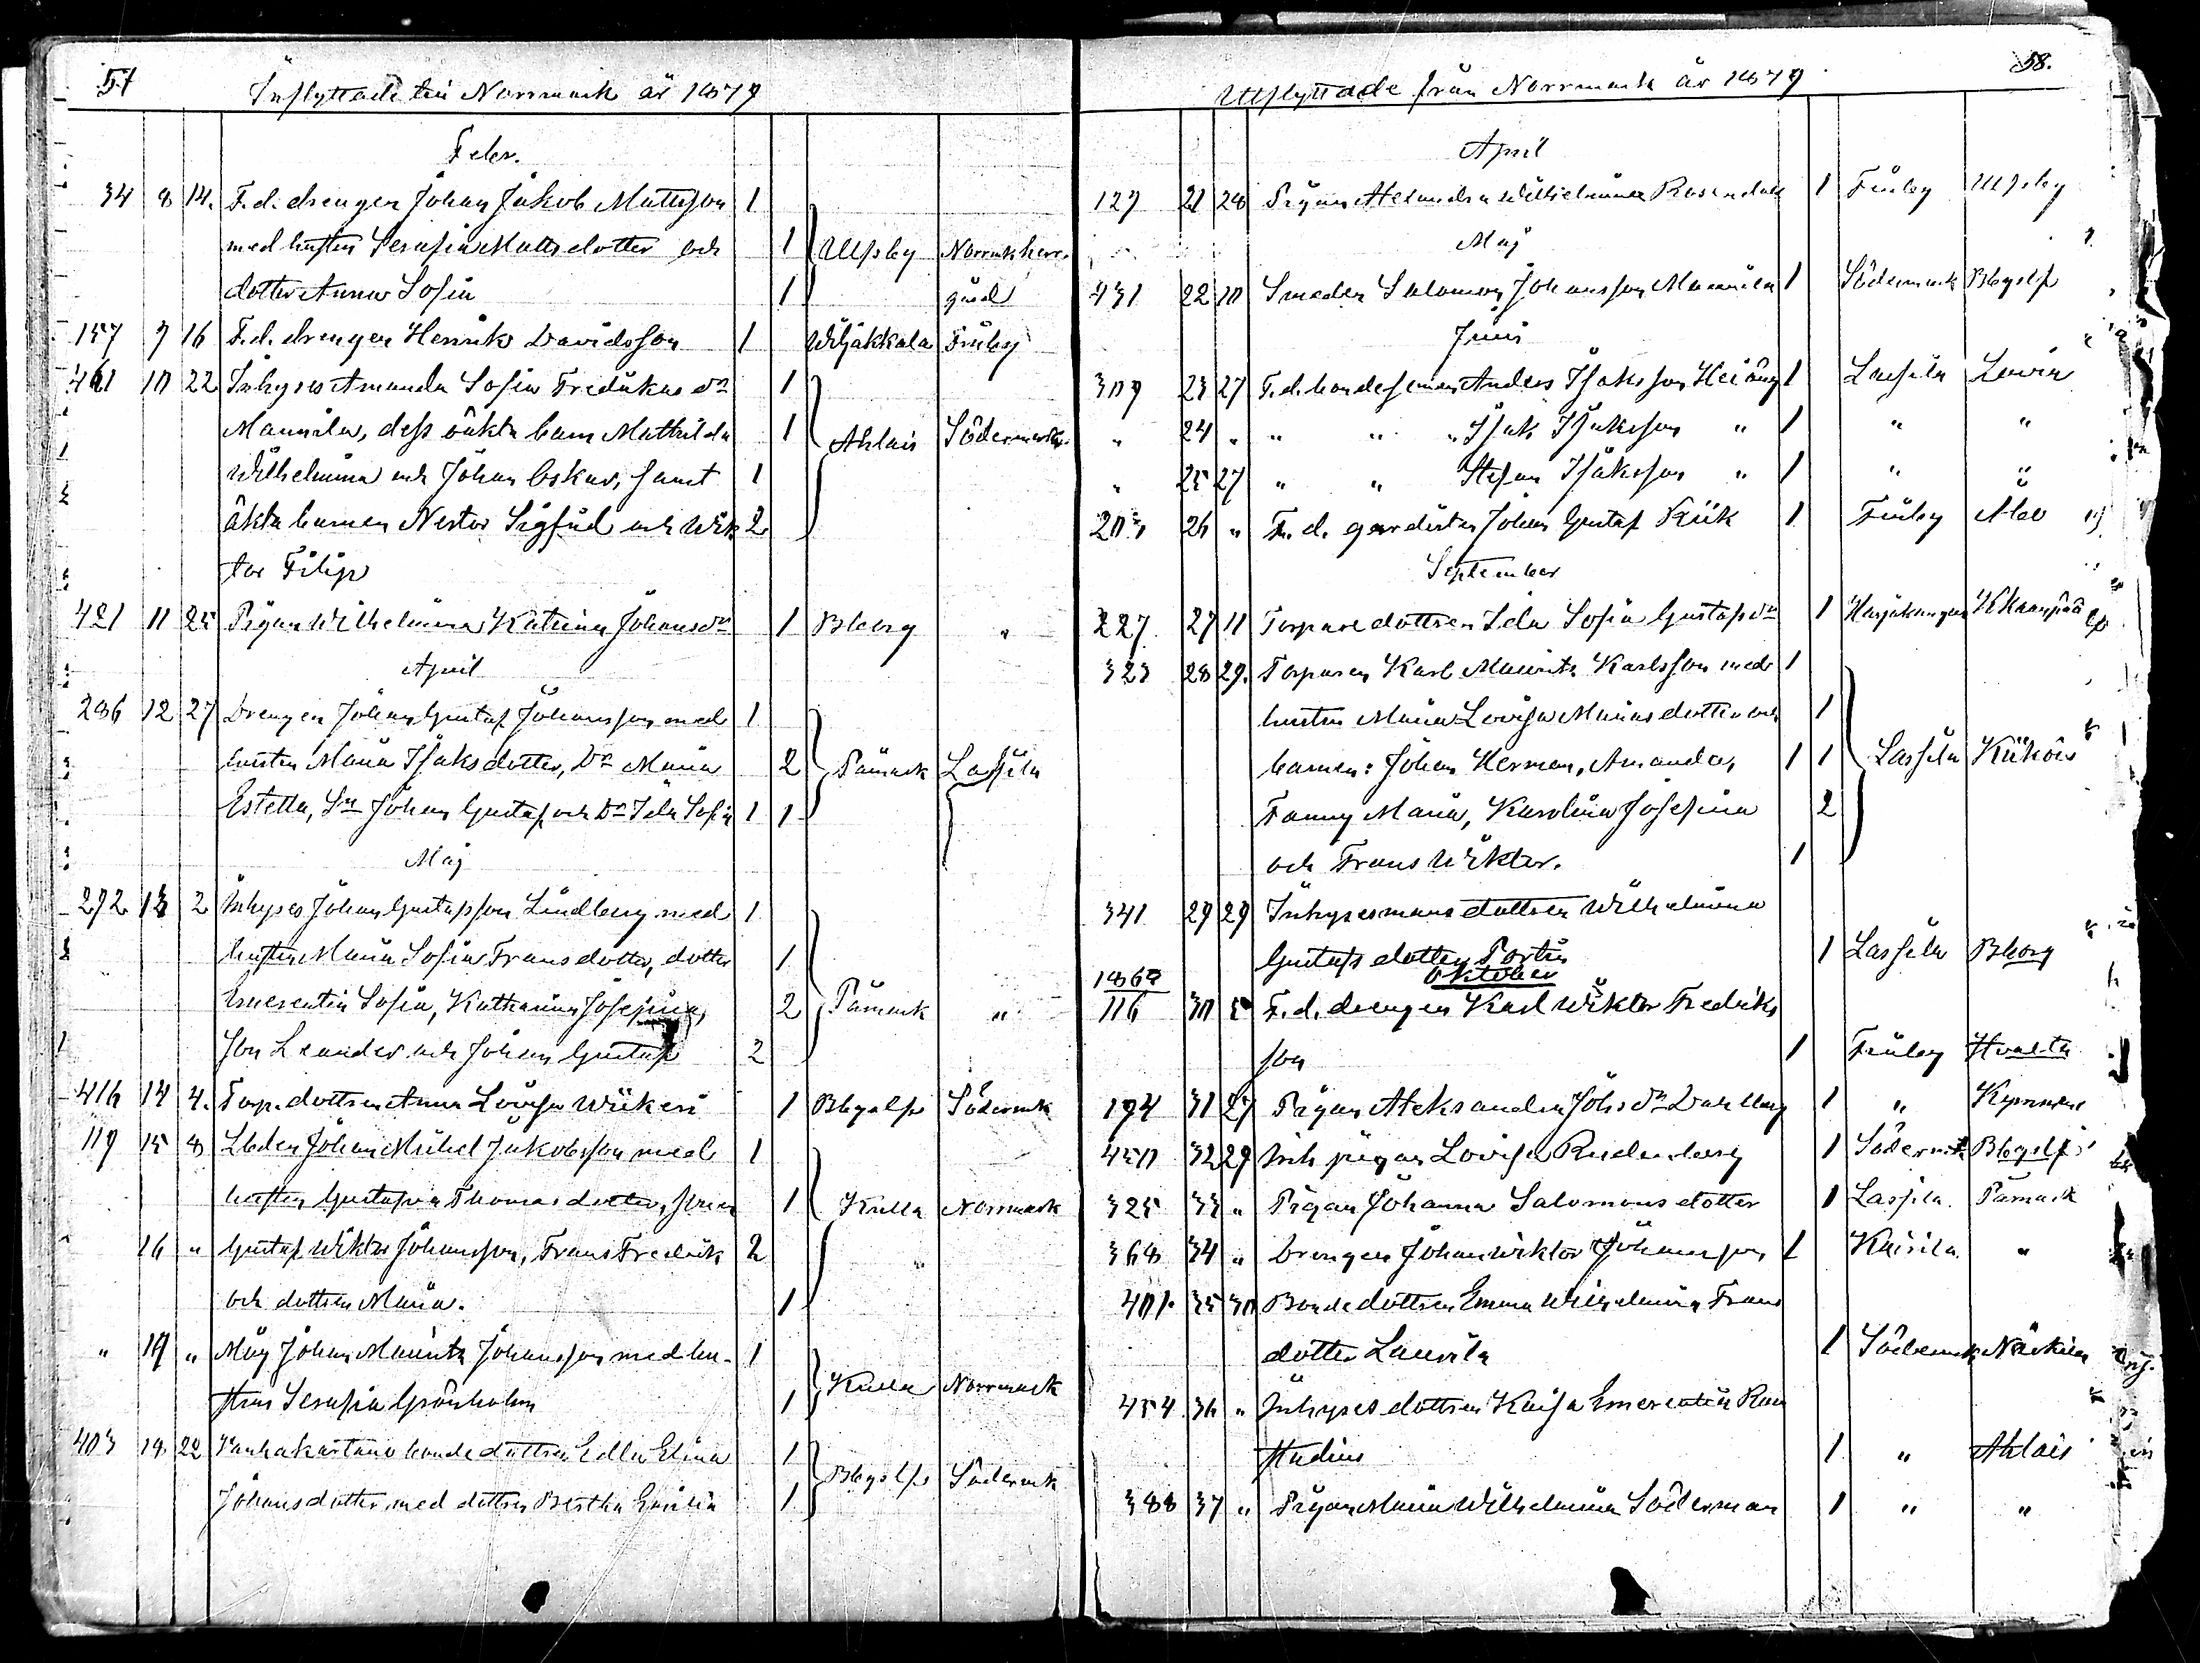 57
Inflyttade till Norrmark år 1879
Febr.
34 8 14. F. d. drengen Johan Jakob Mattsson 1
med hustru Serafia Mattsdotter och 1 Ulfsby Norrmk herr-
dotter Anna Sofia 1 gård
157 9 16 F. d. drengen Henrik Davidsson 1 Wiljakkala Finby
461 10 22 Inhyses Amanda Sofia Fredriks dr 1
Mannila, dess oäkta barn Mathilda 1 Ahlais Södermark
Wilhelmina och Johan Oskar, samt 1
äkta barnen Nestor Sigfrid och Wik 2
tor Filip
421 11 25 Pigan Wilhelmina Katrina Johansdr 1 Bborg "
April
286 12 27 Drengen Johan Gustaf Johansson med 1
hustru Maria Isaksdotter, Dr Maria 2 Påmark Lassila
Estella, Sn Johan Gustaf och Dr Ida Sofia 1 1
Maj
292 13 2 Inhyses Johan Gustafsson Lindberg med 1
hustru Maria Sofia Fransdotter, dotter 1
Emerentia Sofia, Katharina Josefina, 2 Påmark "
Son Leander och Johan Gustaf 2
416 14 4. Torp. dottren Anna Lovisa Wiikeri 1 Bbgslf Södermk
119 15 8 Lboden Johan Mikel Jakobsson med 1
hustru Gustafva Thomasdotter, söner 1 Kulla Norrmark
16 " Gustaf Wiktor Johansson, Frans Fredrik 2 "
och dottren Maria. 1
" 17 " Måg Johan Mauritz Johansson med hu- 1
stru Serafia Grönholm 1 Kulla Norrmark
403 18 22 Vanhakartano bondedottren Edla Elina 1
Johansdotter med dottren Bertha Emilia 1 Bbgslf Södermk
58.
Utflyttade från Norrmark år 1879
April
129 21 28 Pigan Alexandra Wilhelmina Rosendahl 1 Finby Ulfsby
Maj
431 22 10 Smeden Salomon Johansson Mannila 1 Södermark Bbgslf
Juni
309 23 27 F. d. bondesonen Anders Isaksson Heiäng 1 Lassila Lavia
" 24 " " " " Isak Isaksson " 1 " "
" 25 27 " " Stefan Isaksson " 1 " "
203 26 " F. d. gardisten Johan Gustaf Kiik 1 Finby Åbo
September
227 27 11 Torpare dottren Ida Sofia Gustafsdr 1 Harjakangas KKaanpää
323 28 29. Torparen Karl Mauritz Karlsson med 1
hustru Maria Lovisa Mariasdotter och 1
barnen: Johan Herman, Amanda, 1 1 Lassila Kiikois
Fanny Maria, Karolina Josefina 2
och Frans Wiktor. 1
341 29 29 Inhysesmans dottren Wilhelmina
Gustafsdotter Portin 1 Lassila Bborg
Oktober
1868
116 30 5 F. d. drengen Karl Wiktor Fredriks
son 1 Finby Hvalta
194 31 27 Pigan Aleksandra Johsdr Dahlberg 1 " Kymmene
450 32 29 Inh pigan Lovisa Rudenberg 1 Södermk Bbgslf
325 33 " Pigan Johanna Salomonsdotter 1 Lassila. Påmark
368 34 " Drengen Johan Wiktor Johansson 1 Kairila "
401. 35 30 Bondedottren Emma Wilhelmina Frans
dotter Laurila 1 Södermk Närkila
454. 36 " Inhyses dottren Kaisa Emerentia Ran
studius 1 " Ahlais
388 37 " Pigan Maria Wilhelmina Söderman 1 " "